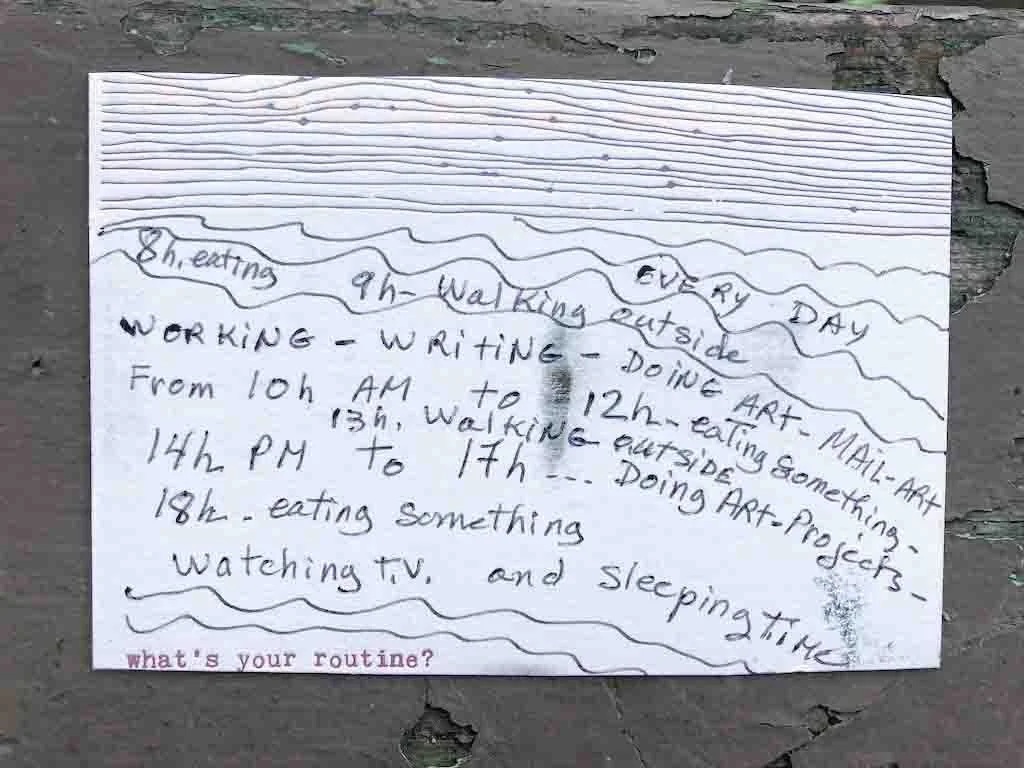 EVERY DAY
8h. eating
9h- Walking outside
WORKING - WRitiNG - DOiNG ART- MAiL-ART
From 10h AM to 12h- eating something-
13h. WalkiNG outSiDE
14h PM to 17h --- Doing ART-Projects-
18h - eating something
Watching T.V. and SleepingTiME
what's your routine?